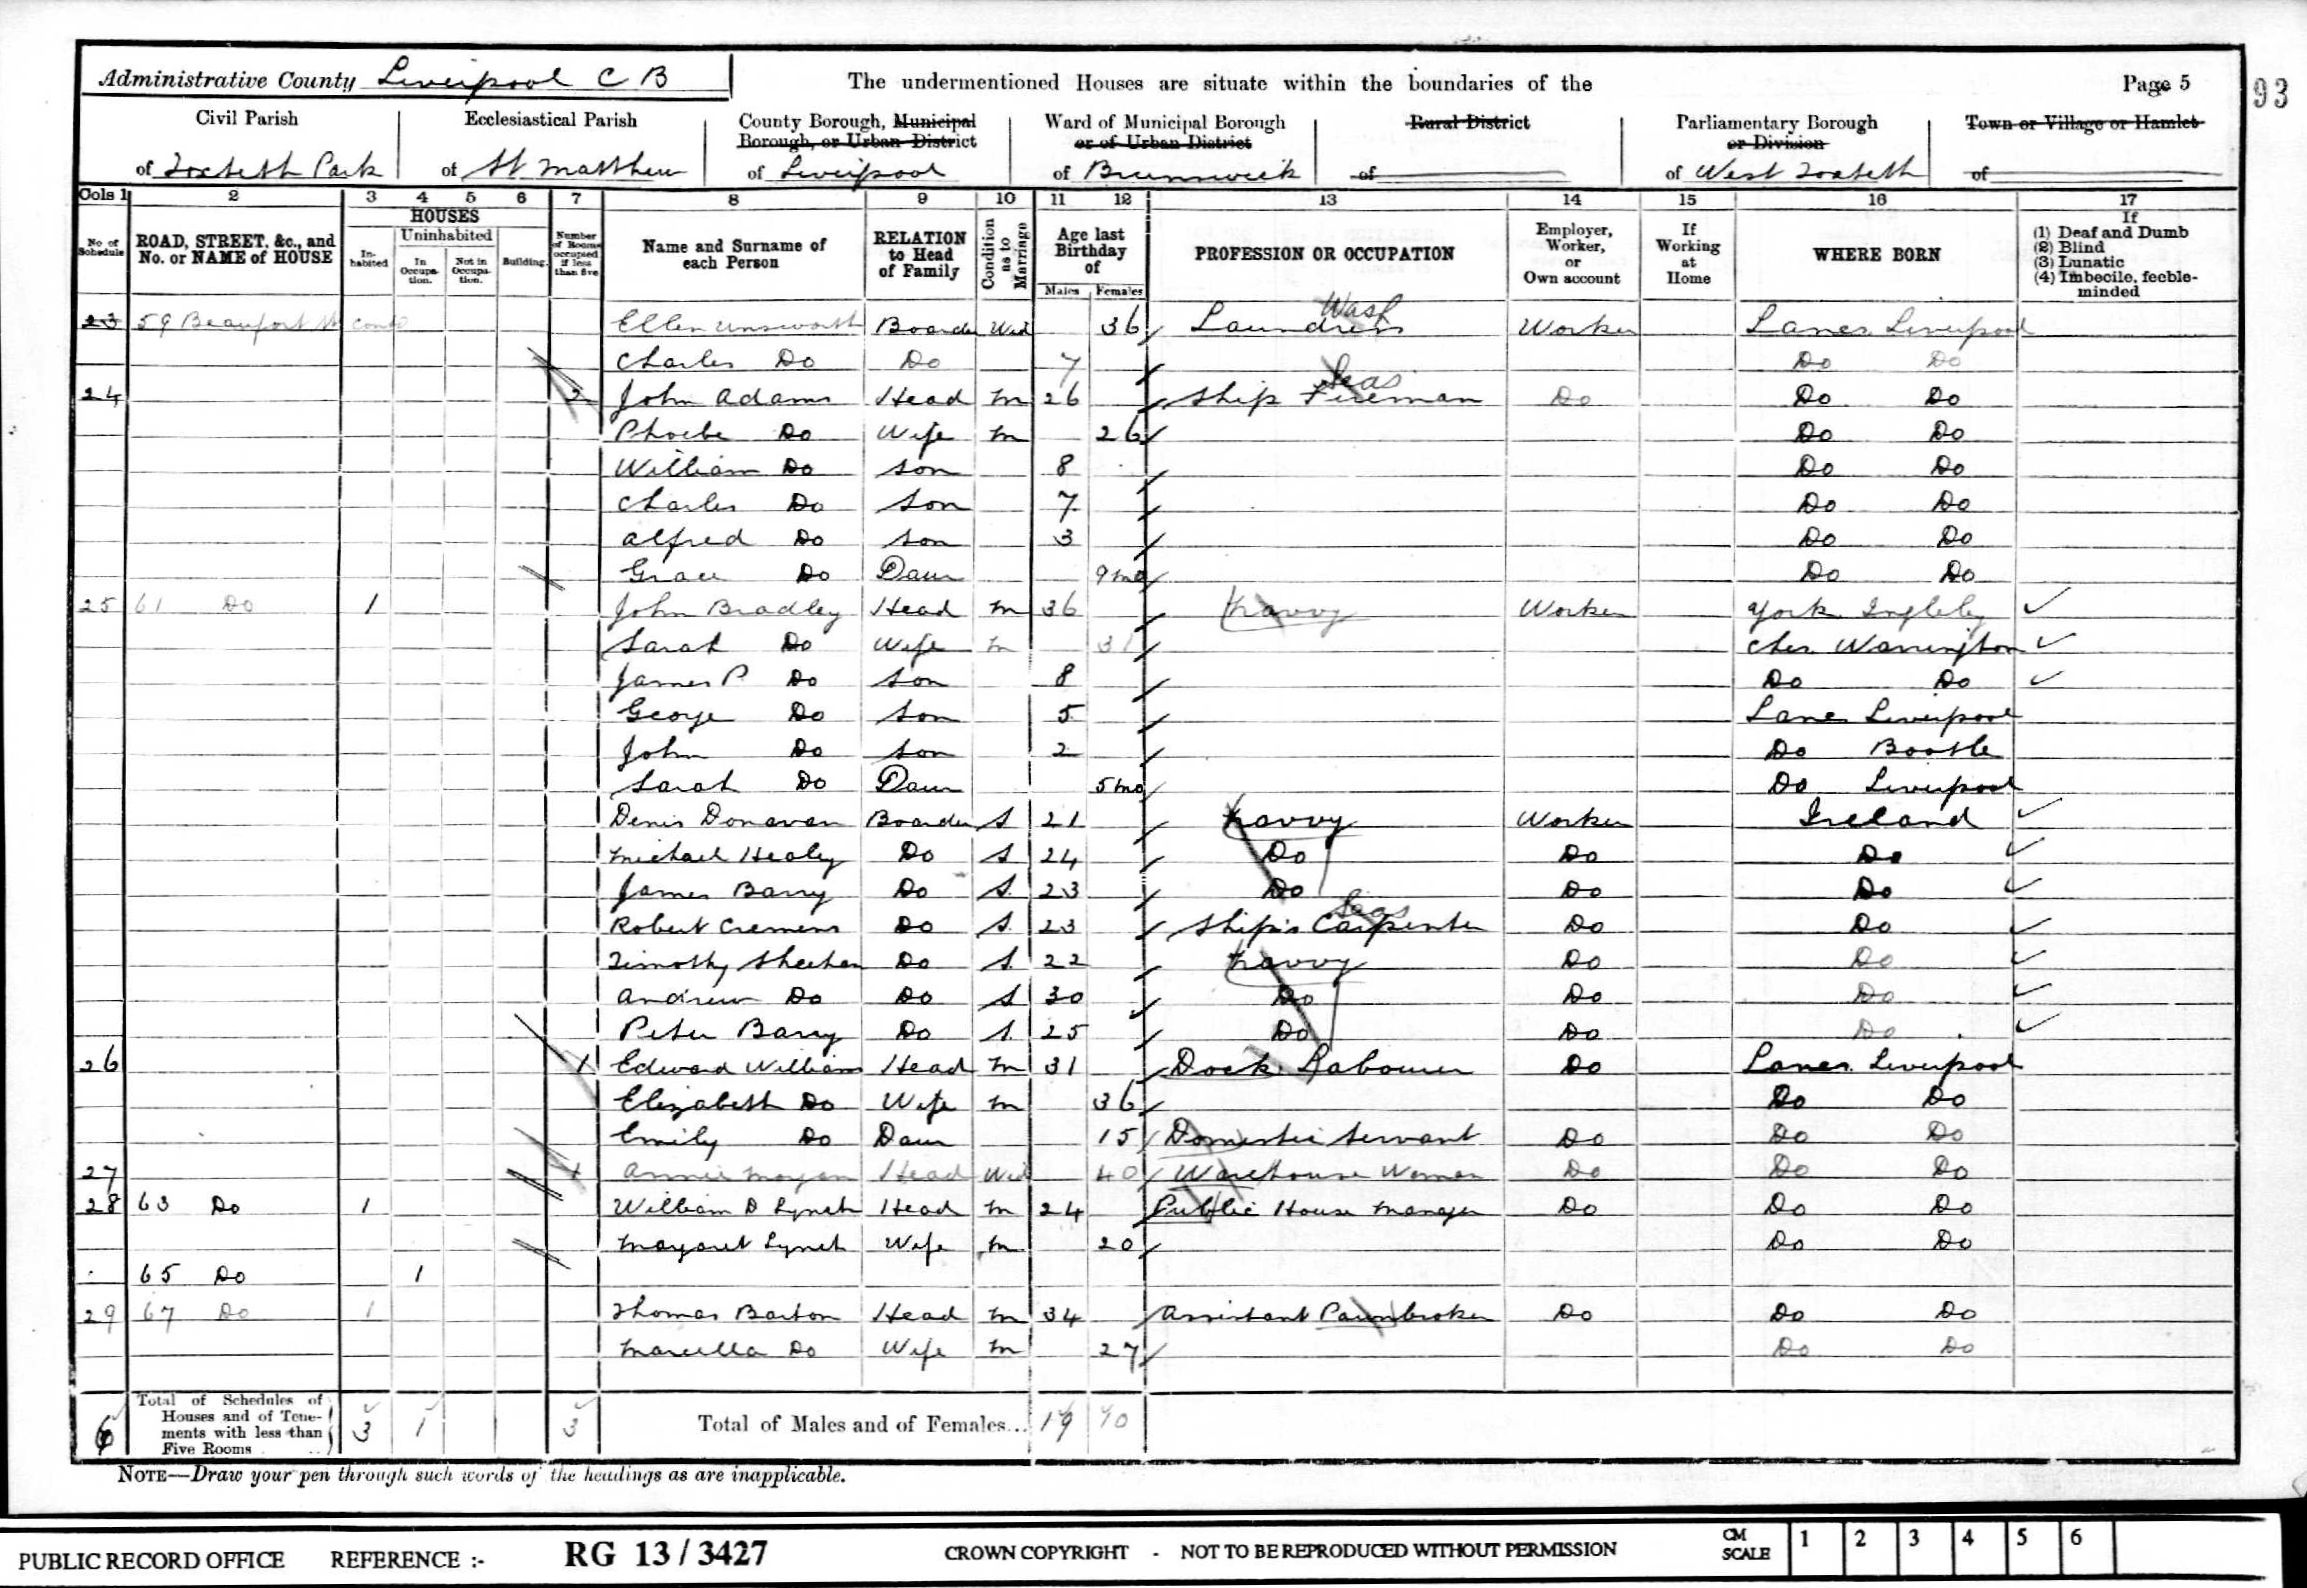 Administrative County Liverpool C B The undermentioned Houses are situate within the boundaries of the Page 5 93
Civil Parish Ecclesiastical Parish County Borough, Municipal Ward of Municipal Borough Rural District Parliamentary Borough Town or Village or Hamlet
Borough, or Urban District or of Urban District or Division
of Toxteth Park of St Matthew of Liverpool of Brunswick of of West Toxteth of
Cols 1 2 3 4 5 6 7 8 9 10 11 12 13 14 15 16 17
No of Schedule ROAD, STREET, &c., and No. or NAME of HOUSE HOUSES Inhabited Uninhabited In Occupation. Not in Occupation. Building. Number of Rooms occupied if less than five Name and Surname of each Person RELATION to Head of Family Condition as to Marriage Age last Birthday of Males Females PROFESSION OR OCCUPATION Employer, Worker, or Own account If Working at Home WHERE BORN If (1) Deaf and Dumb (2) Blind (3) Lunatic (4) Imbecile, feeble-minded
23 59 Beaufort St contd Ellen Unsworth Boarder Wid 36 Laundress Wash Worker Lancs Liverpool
Charles Do Do 7 Do Do
24 2 John Adams Head M 26 Ship Fireman Seas Do Do Do
Phoebe Do Wife M 26 Do Do
William Do Son 8 Do Do
Charles Do Son 7 Do Do
Alfred Do Son 3 Do Do
Grace Do Daur 9 mo Do Do
25 61 Do 1 John Bradley Head M 36 Navvy Worker York Ingleby
Sarah Do Wife M 31 Ches Warrington
James P Do Son 8 Do Do
George Do Son 5 Lancs Liverpool
John Do Son 2 Do Bootle
Sarah Do Daur 5 mo Do Liverpool
Denis Donavan Boarder S 21 Navvy Worker Ireland
Michael Healey Do S 24 Do Do Do
James Barry Do S 23 Do Do Do
Robert Cremens Do S 23 Ship's Carpenter Seas Do Do
Timothy Sheehan Do S 22 Navvy Do Do
Andrew Do Do S 30 Do Do Do
Peter Barry Do S 25 Do Do Do
26 1 Edward Williams Head M 31 Dock Labourer Do Lancs Liverpool
Elizabeth Do Wife M 36 Do Do
Emily Do Daur 15 Domestic Servant Do Do Do
27 1 Annie Head Wid 40 Warehouse Woman Do Do Do
28 63 Do 1 William D Lynch Head M 24 Public House Manager Do Do Do
Margaret Lynch Wife M 20 Do Do
65 Do 1
29 67 Do 1 Thomas Barton Head M 34 Assistant Pawnbroker Do Do Do
Marcella Do Wife M 27 Do Do
6 Total of Schedules of Houses and of Tenements with less than Five Rooms 3 1 3 Total of Males and of Females... 19 10
NOTE—Draw your pen through such words of the headings as are inapplicable.
PUBLIC RECORD OFFICE REFERENCE :- RG 13 / 3427 CROWN COPYRIGHT - NOT TO BE REPRODUCED WITHOUT PERMISSION CM SCALE 1 2 3 4 5 6